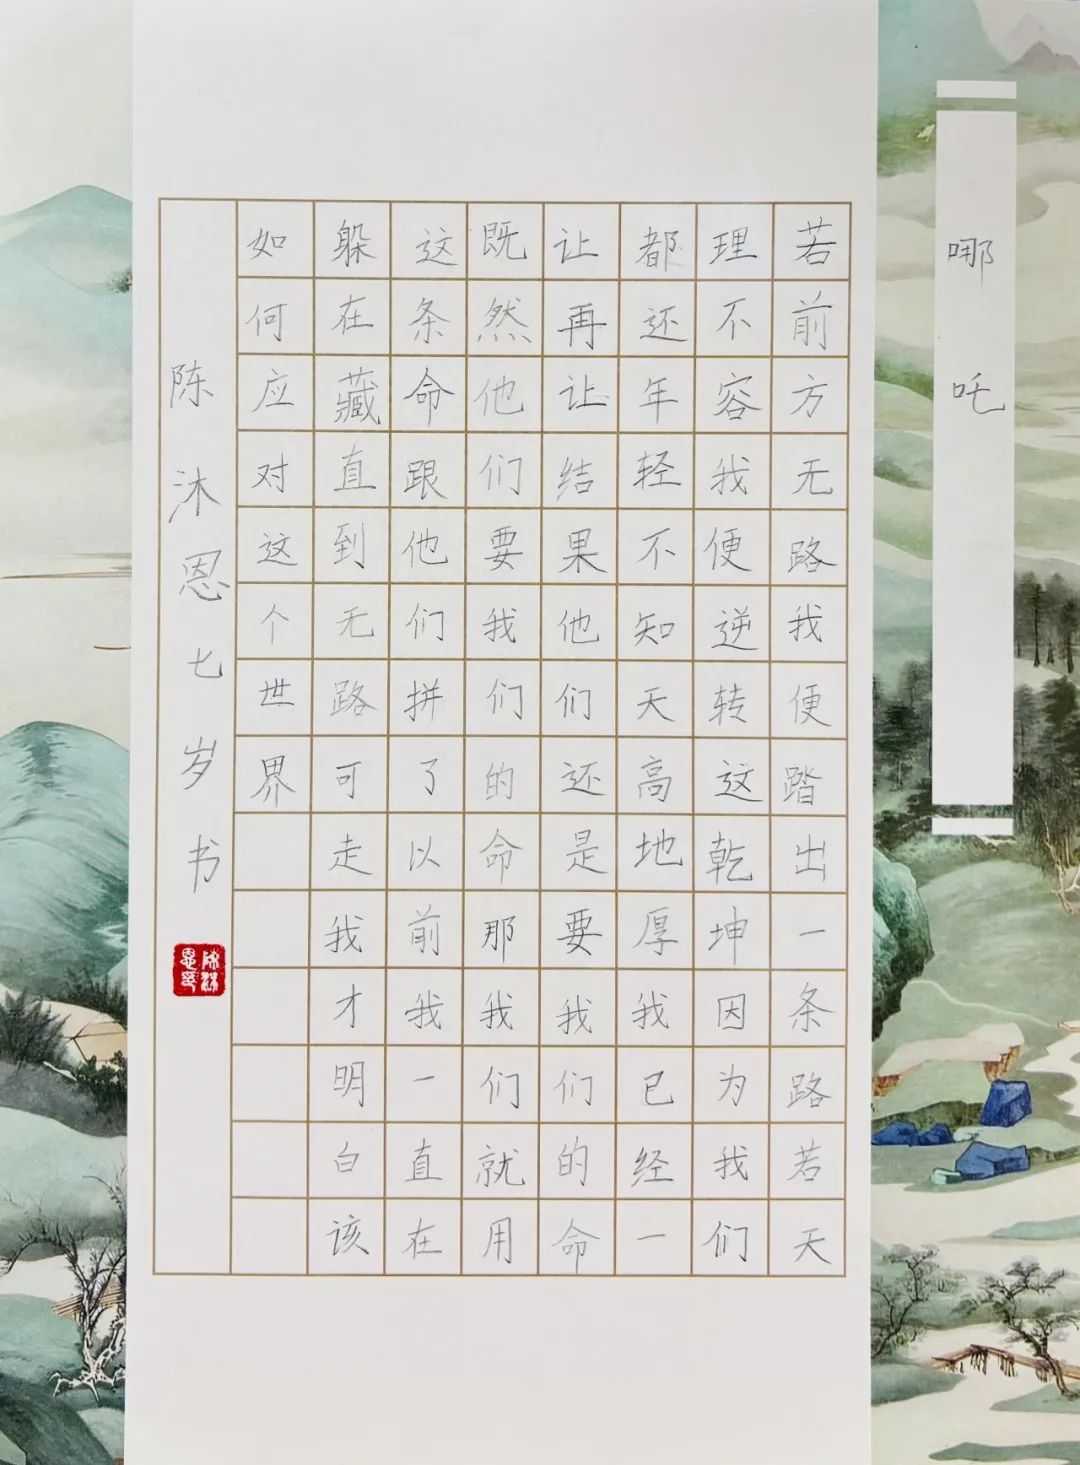 哪吒
若前方无路我便踏出一条路若天
理不容我便逆转这乾坤因为我们
都还年轻不知天高地厚我已经一
让再让结果他们还是要我们的命
既然他们要我们的命那我们就用
这条命跟他们拼了以前我一直在
躲在藏直到无路可走我才明白该
如何应对这个世界
陈沐恩七岁书